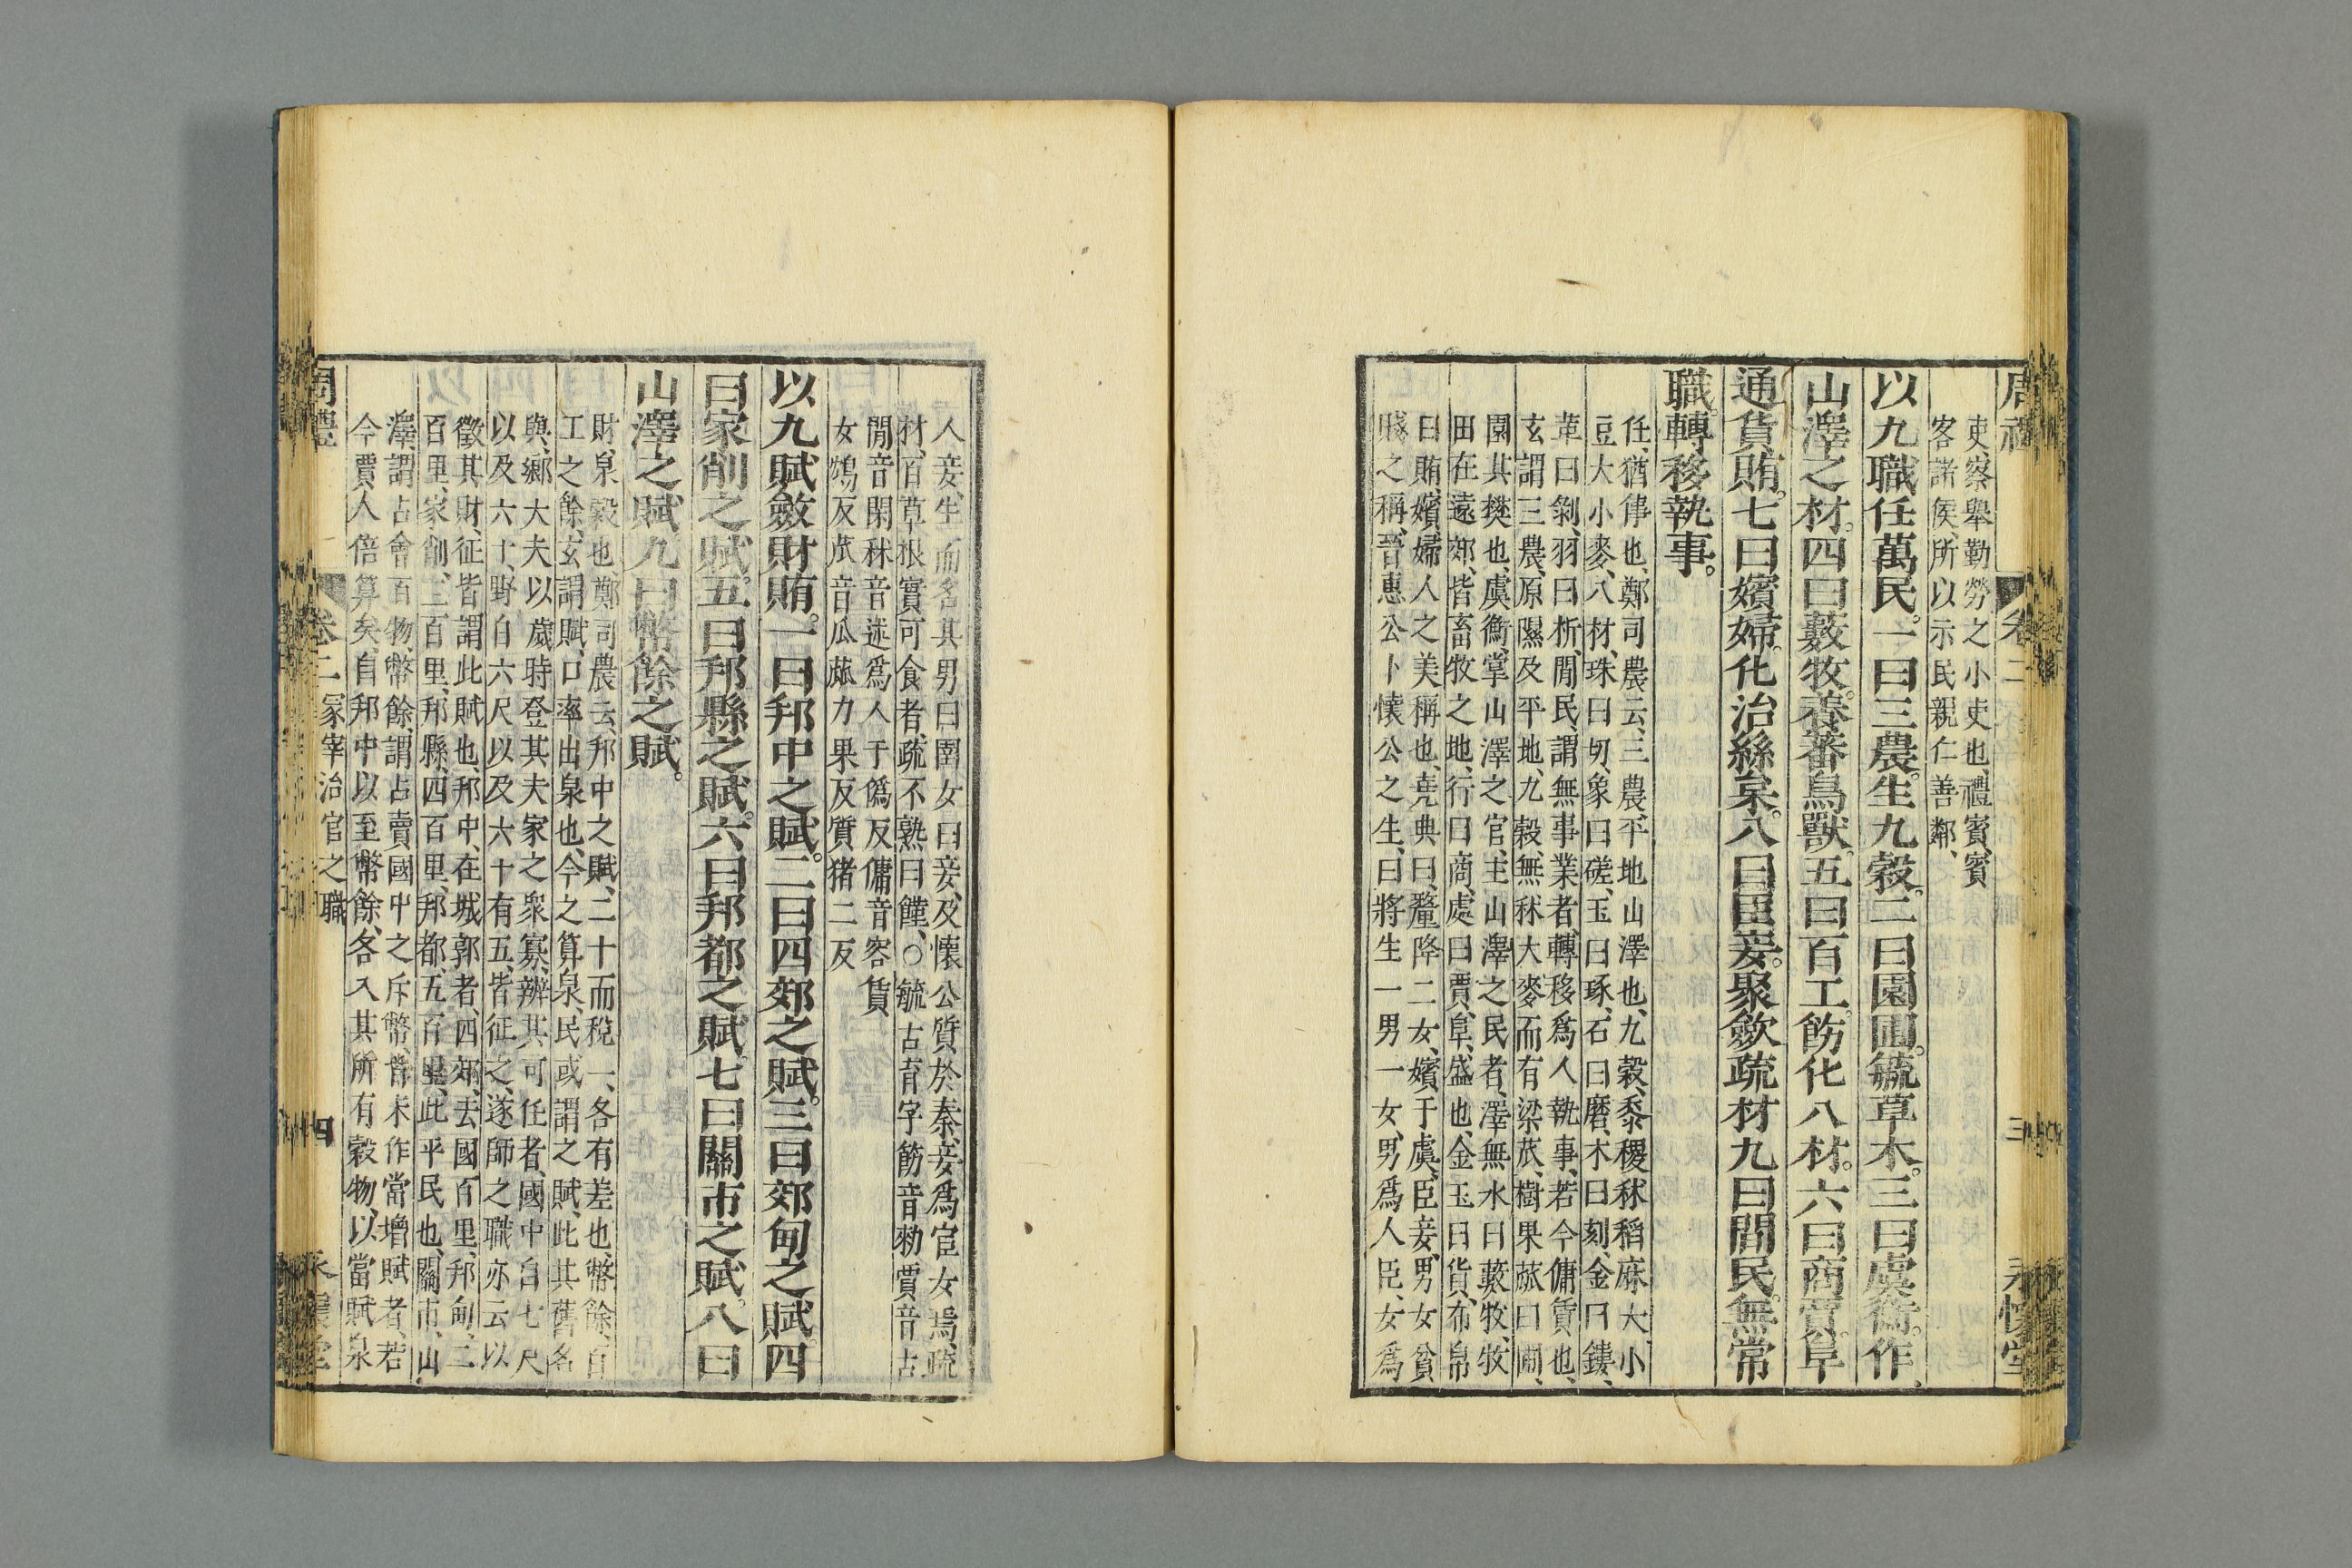 周禮 卷二 三 永懷堂
吏、察舉勤勞之小吏也、禮賓、賓
客諸侯、所以示民親仁善鄰、
以九職任萬民。一曰三農。生九穀。二曰園圃。毓草木。三曰虞衡。作
山澤之材。四曰藪牧。養蕃鳥獸。五曰百工。飭化八材。六曰商賈。阜
通貨賄。七曰嬪婦。化治絲枲。八曰臣妾。聚斂疏材九曰閒民。無常
職。轉移執事。
任、猶倳也、鄭司農云、三農、平地山澤也、九穀、黍稷秫稻麻大小
豆大小麥、八材、珠曰切、象曰磋、玉曰琢、石曰磨、木曰刻、金曰鏤、
革曰剝、羽曰析、閒民、謂無事業者、轉移爲人執事、若今傭賃也、
玄謂三農、原隰及平地、九穀、無秫大麥、而有粱苽、樹果蓏曰圃、
園其樊也、虞衡、掌山澤之官、主山澤之民者、澤無水曰藪、牧、牧
田在遠郊、皆畜牧之地、行曰商、處曰賈、阜、盛也、金玉曰貨、布帛
曰賄、嬪、婦人之美稱也、堯典曰、釐降二女、嬪于虞、臣妾、男女貧
賤之稱、晉惠公卜懷公之生、曰將生一男一女、男爲人臣、女爲
人妾、生而名其男曰圉女曰妾、及懷公質於秦、妾爲宦女焉、疏
材、百草根實可食者、疏不熟曰饉、○毓古育字飭音勑賈音古
閒音閑秫音述爲人于僞反傭音容賃
女鴆反苽音瓜蓏力果反質猪二反
以九賦斂財賄。一曰邦中之賦。二曰四郊之賦。三曰郊甸之賦。四
曰家削之賦。五曰邦縣之賦。六曰邦都之賦。七曰關市之賦。八曰
山澤之賦九曰幣餘之賦。
財、泉穀也鄭司農云、邦中之賦、二十而稅一、各有差也、幣餘、百
工之餘、玄謂賦、口率出泉也、今之算泉、民或謂之賦、此其舊名
與、鄉大夫以歲時登其夫家之衆寡、辨其可任者、國中自七尺
以及六十、野自六尺以及六十有五、皆征之、遂師之職亦云以
徵其財、征皆謂此賦也、邦中、在城郭者、四郊、去國百里、邦甸、二
百里、家削、三百里、邦縣、四百里、邦都、五百里、此平民也、關市、山
澤、謂占會百物、幣餘、謂占賣國中之斥幣、皆末作當增賦者、若
今賈人倍算矣、自邦中以至幣餘、各入其所有穀物、以當賦泉
周禮 卷二 冢宰治官之職 四 永懷堂